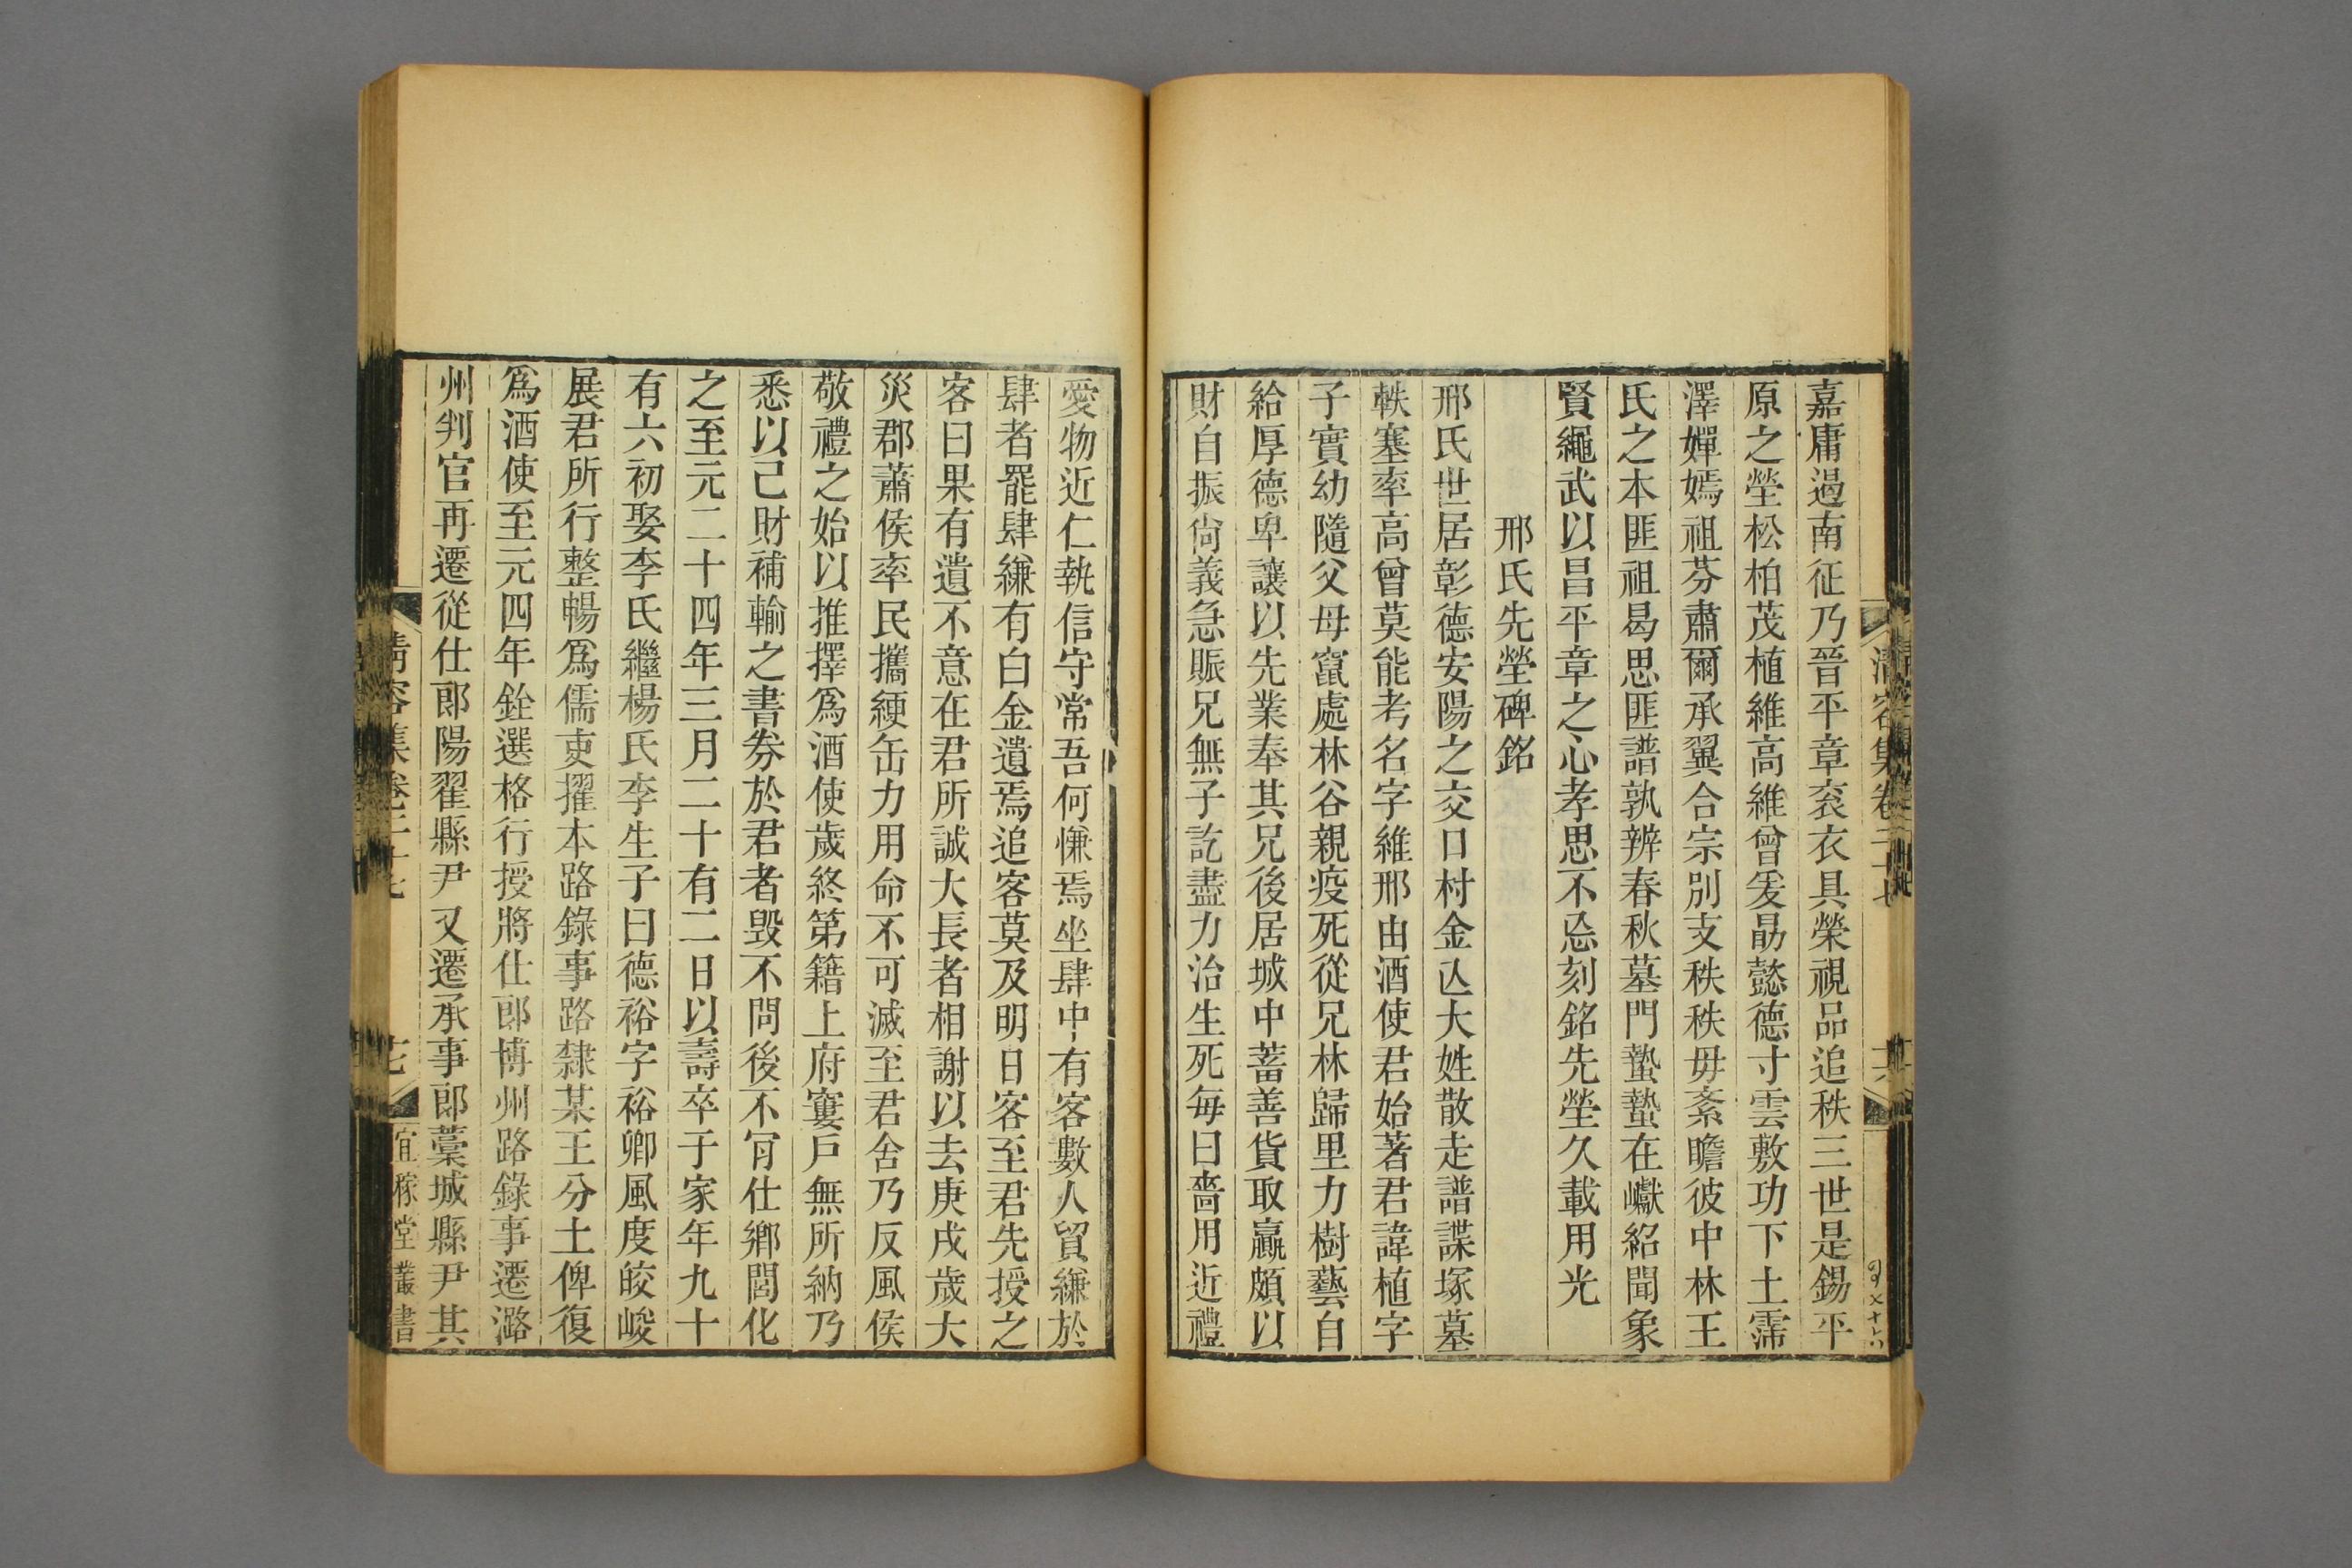 嘉庸過南征乃晉平章衮衣具榮視品追秩三世是錫平
原之塋松柏茂植維高維曾爰勗懿德寸雲敷功下土霈
澤嬋嫣祖芬肅爾承翼合宗別支秩秩毋紊瞻彼中林王
氏之本匪祖曷思匪譜孰辨春秋墓門蟄蟄在巘紹聞象
賢繩武以昌平章之心孝思不忘刻銘先塋久載用光
邢氏先塋碑銘
邢氏世居彰德安陽之交口村金亾大姓散走譜諜塚墓
軼塞率高曾莫能考名字維邢由酒使君始著君諱植字
子實幼隨父母竄處林谷親疫死從兄林歸里力樹藝自
給厚德卑讓以先業奉其兄後居城中蓄善貨取贏頗以
財自振尙義急賑兄無子訖盡力治生死每曰嗇用近禮
愛物近仁執信守常吾何慊焉坐肆中有客數人貿縑於
肆者罷肆縑有白金遺焉追客莫及明日客至君先授之
客曰果有遺不意在君所誠大長者相謝以去庚戌歲大
災郡蕭侯率民攜綆缶力用命不可滅至君舍乃反風侯
敬禮之始以推擇爲酒使歲終第籍上府窶戶無所納乃
悉以己財補輸之書券於君者毀不問後不肎仕鄉閭化
之至元二十四年三月二十有二日以壽卒于家年九十
有六初娶李氏繼楊氏李生子曰德裕字裕卿風度皎峻
展君所行整暢爲儒吏擢本路錄事路隸某王分土俾復
爲酒使至元四年銓選格行授將仕郎博州路錄事遷潞
州判官再遷從仕郎陽翟縣尹又遷承事郎藁城縣尹其
清容集卷二十七
宜稼堂叢書